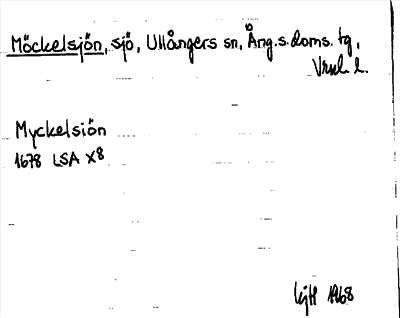 Möckelsjön, sjö, Ullångers sn, Ång.s.doms. tg,
Myckelsjön
1678 LSA X8
1968